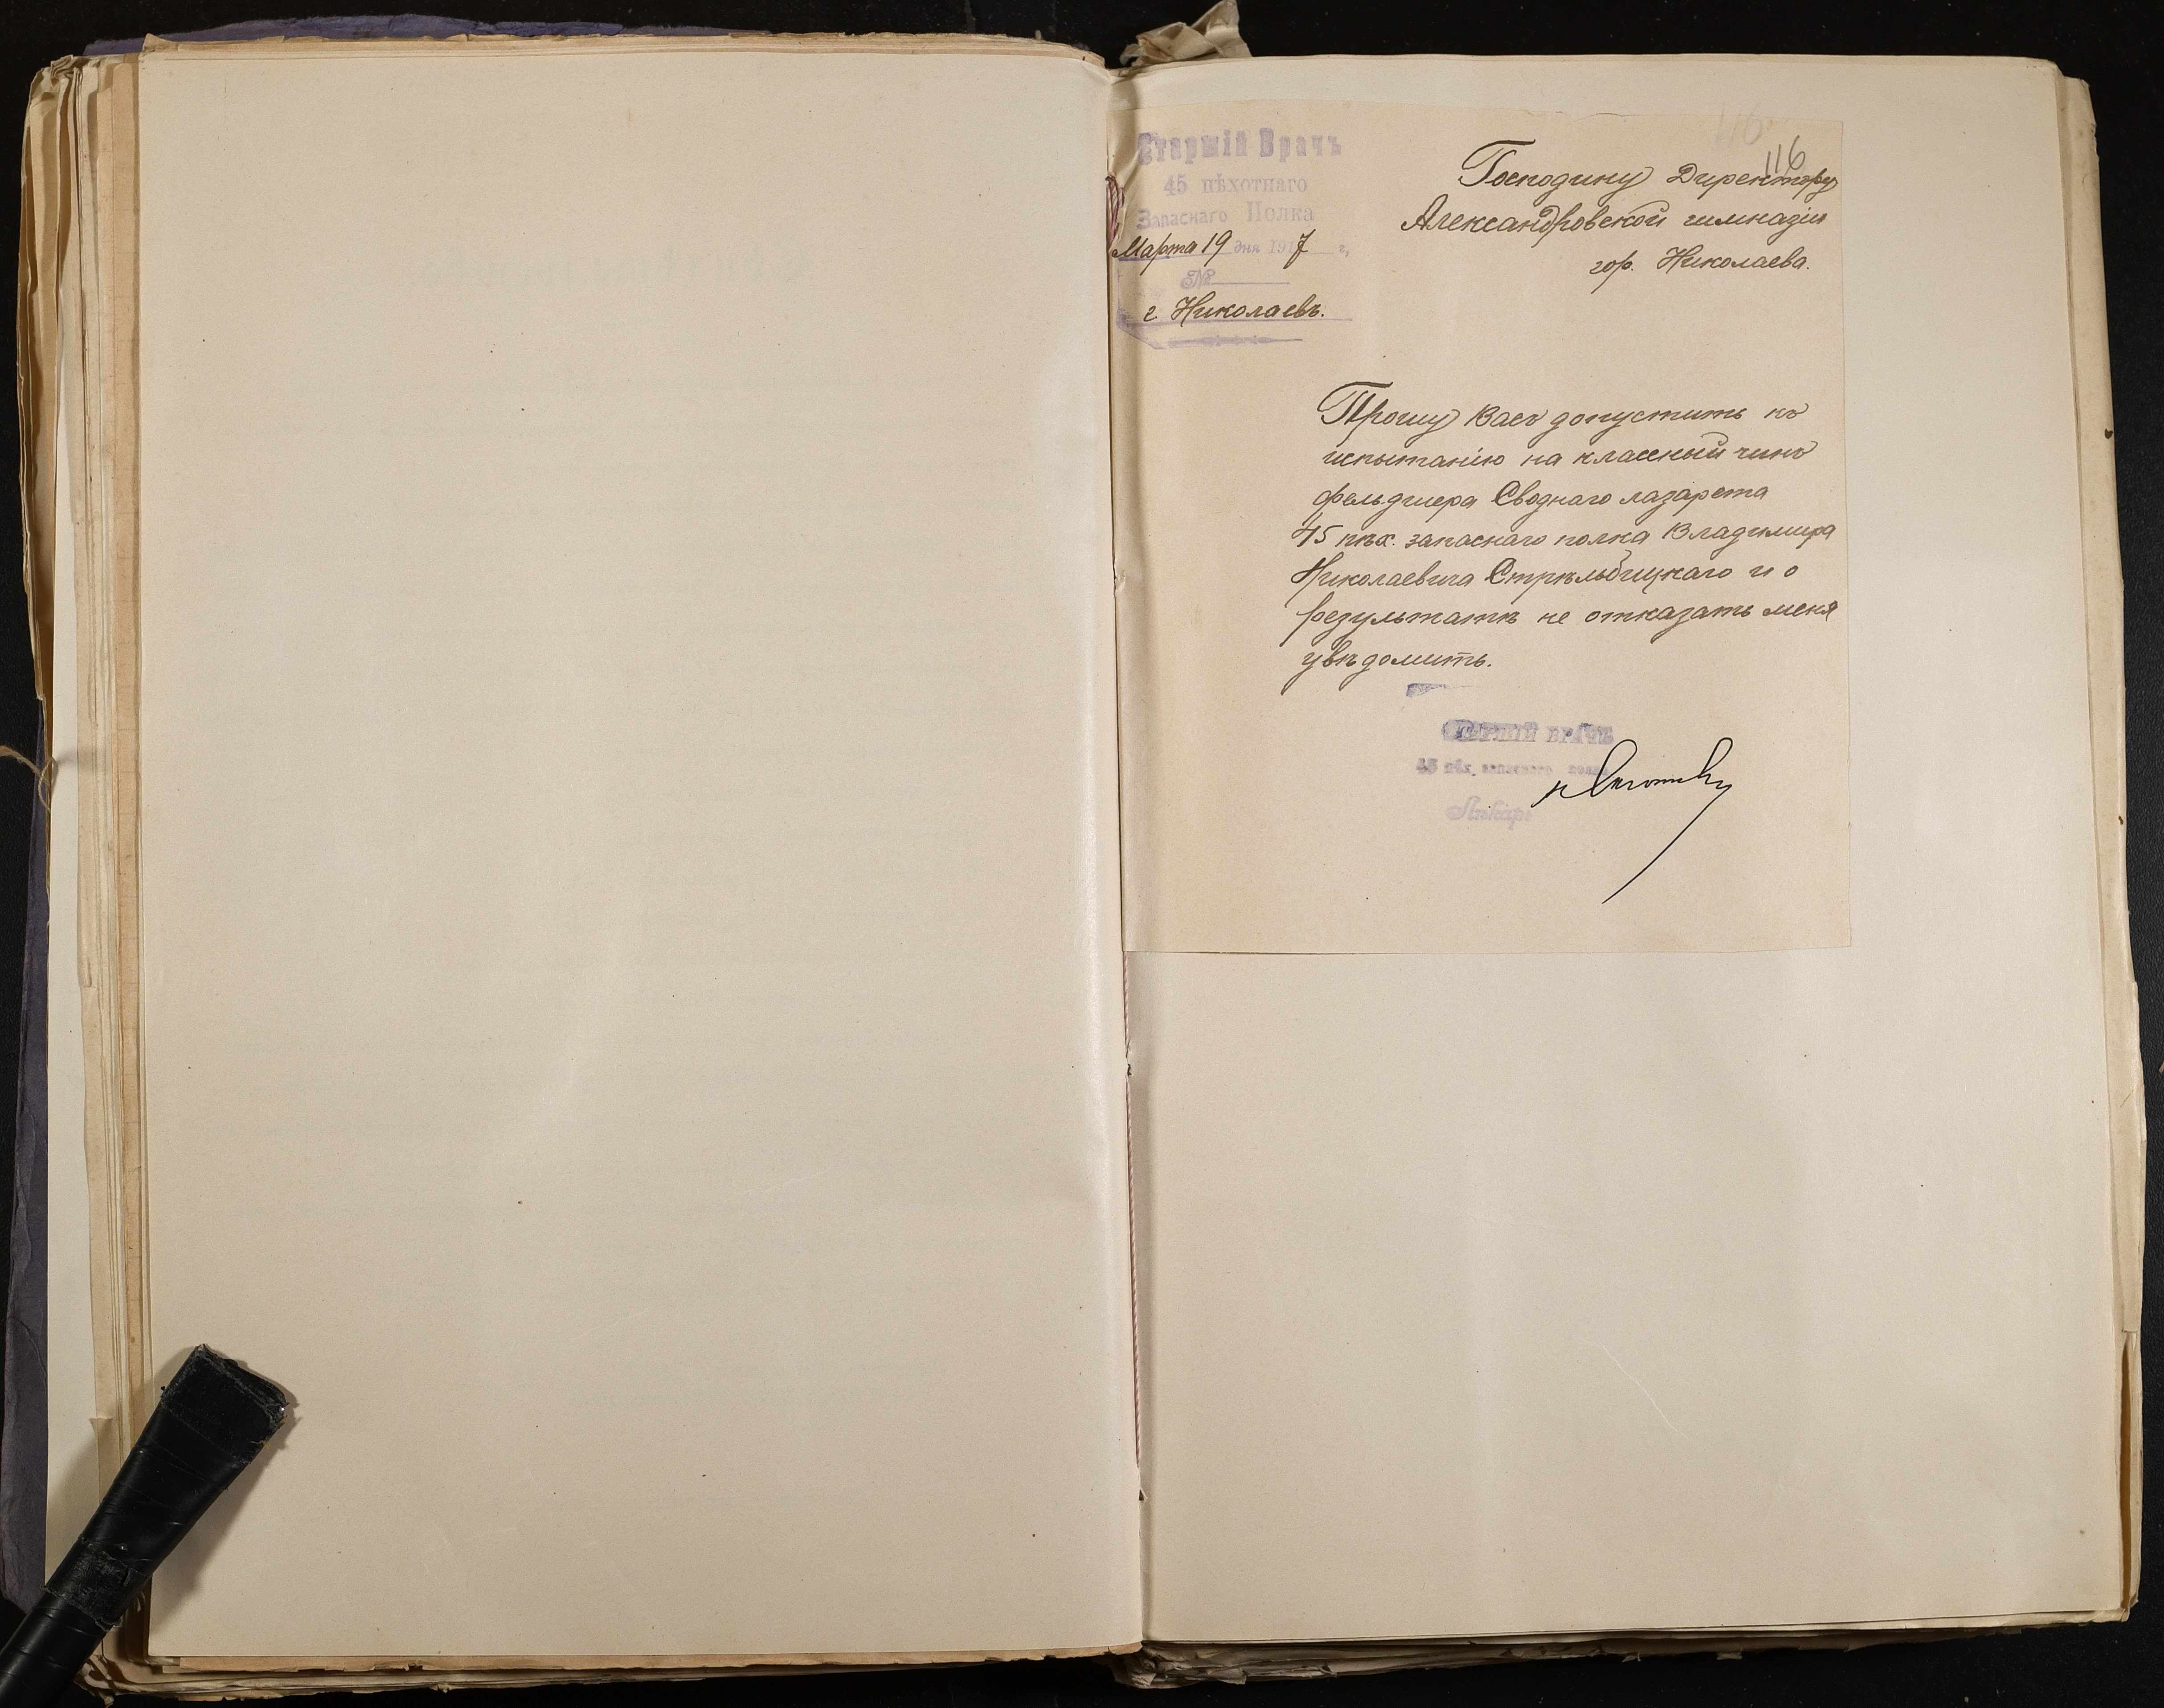 Старшій Врачъ
45 пѣхотнаго
Запаснаго Полка
Марта 19 дня 1917 г.
№
г. Николаевъ.
116
Господину Директору
Александровской гимназіи
гор. Николаева.
Прошу Васъ допустить къ
испытанію на классный чинъ
фельдшера Своднаго лазарета
45 пѣх. запаснаго полка Владимира
Николаевича Стрѣльбицкаго и о
результатѣ не отказать меня
увѣдомить.
СТАРШІЙ ВРАЧЪ
45 пѣх. запаснаго полка
Лѣкарь